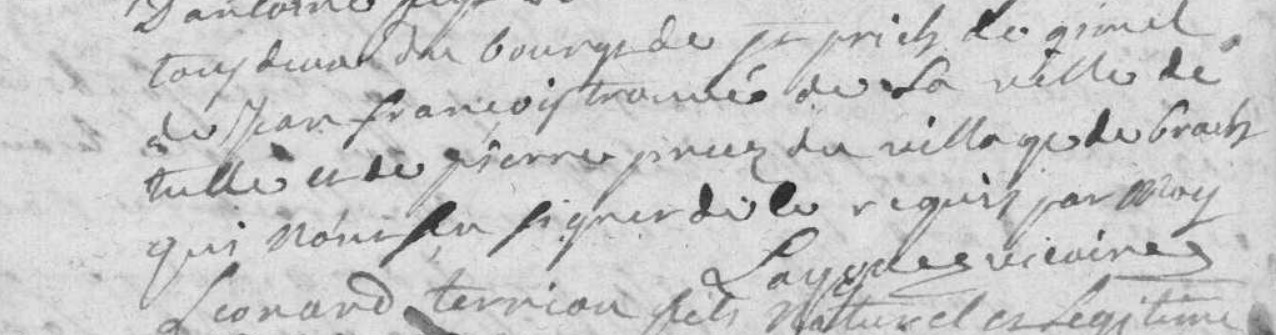 D'antoine
tous deux du bourg de st priest de gimel
de Jean francois trouvé de La ville de
tulle et de pierre du village de brach
qui nont su signer de ce requis par Moy
vicaire
Leonard terriou fils Naturel et Legitime